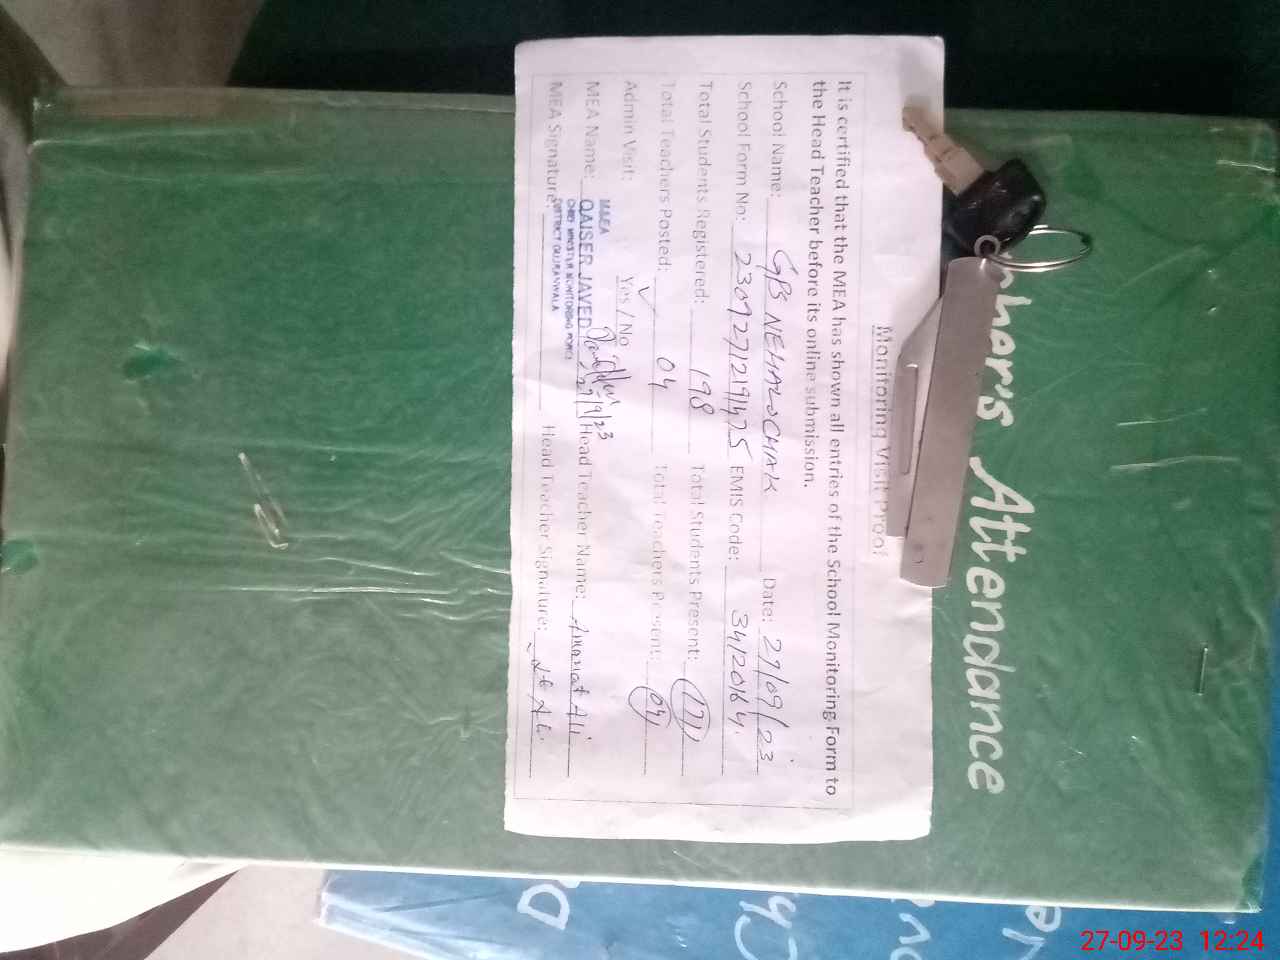 Attendance
Monitoring Visit Proof
It is certified that the MEA has shown all entries of the School Monitoring Form to
the Head Teacher before its online submission.
School Name: GPS NEHALOCHAK Date: 27/09/23
School Form No: EMIS Code: 34120164
Total Students Registered: 198 Total Students Present: 171
Total Teachers Posted: 04 Total Teachers Present: 04
Admin Visit: Yes / No
MEA Name: QAISER JAVED Head Teacher Name: Amanat Ali
MEA Signature: Head Teacher Signature:
MAEA
CHIEF MINISTER MONITORING FORCE
DISTRICT GUJRANWALA
27/9/23
27-09-23 12:24